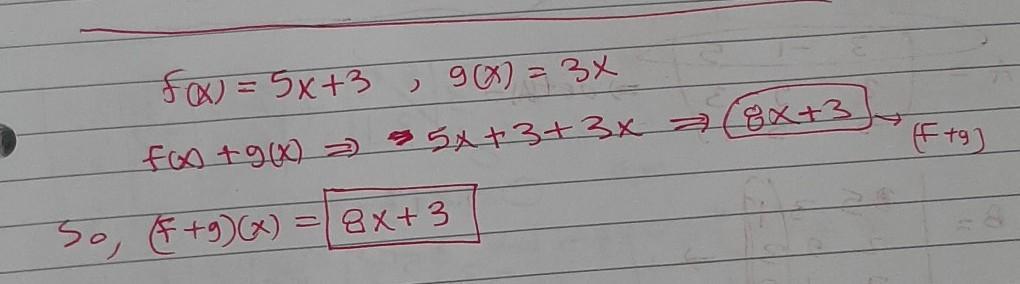 f(x) = 5x+3 , g(x) = 3x
f(x) + g(x) ⇒ 5x + 3 + 3x ⇒ 8x+3 → (f+g)
So, (f+g)(x) = 8x+3